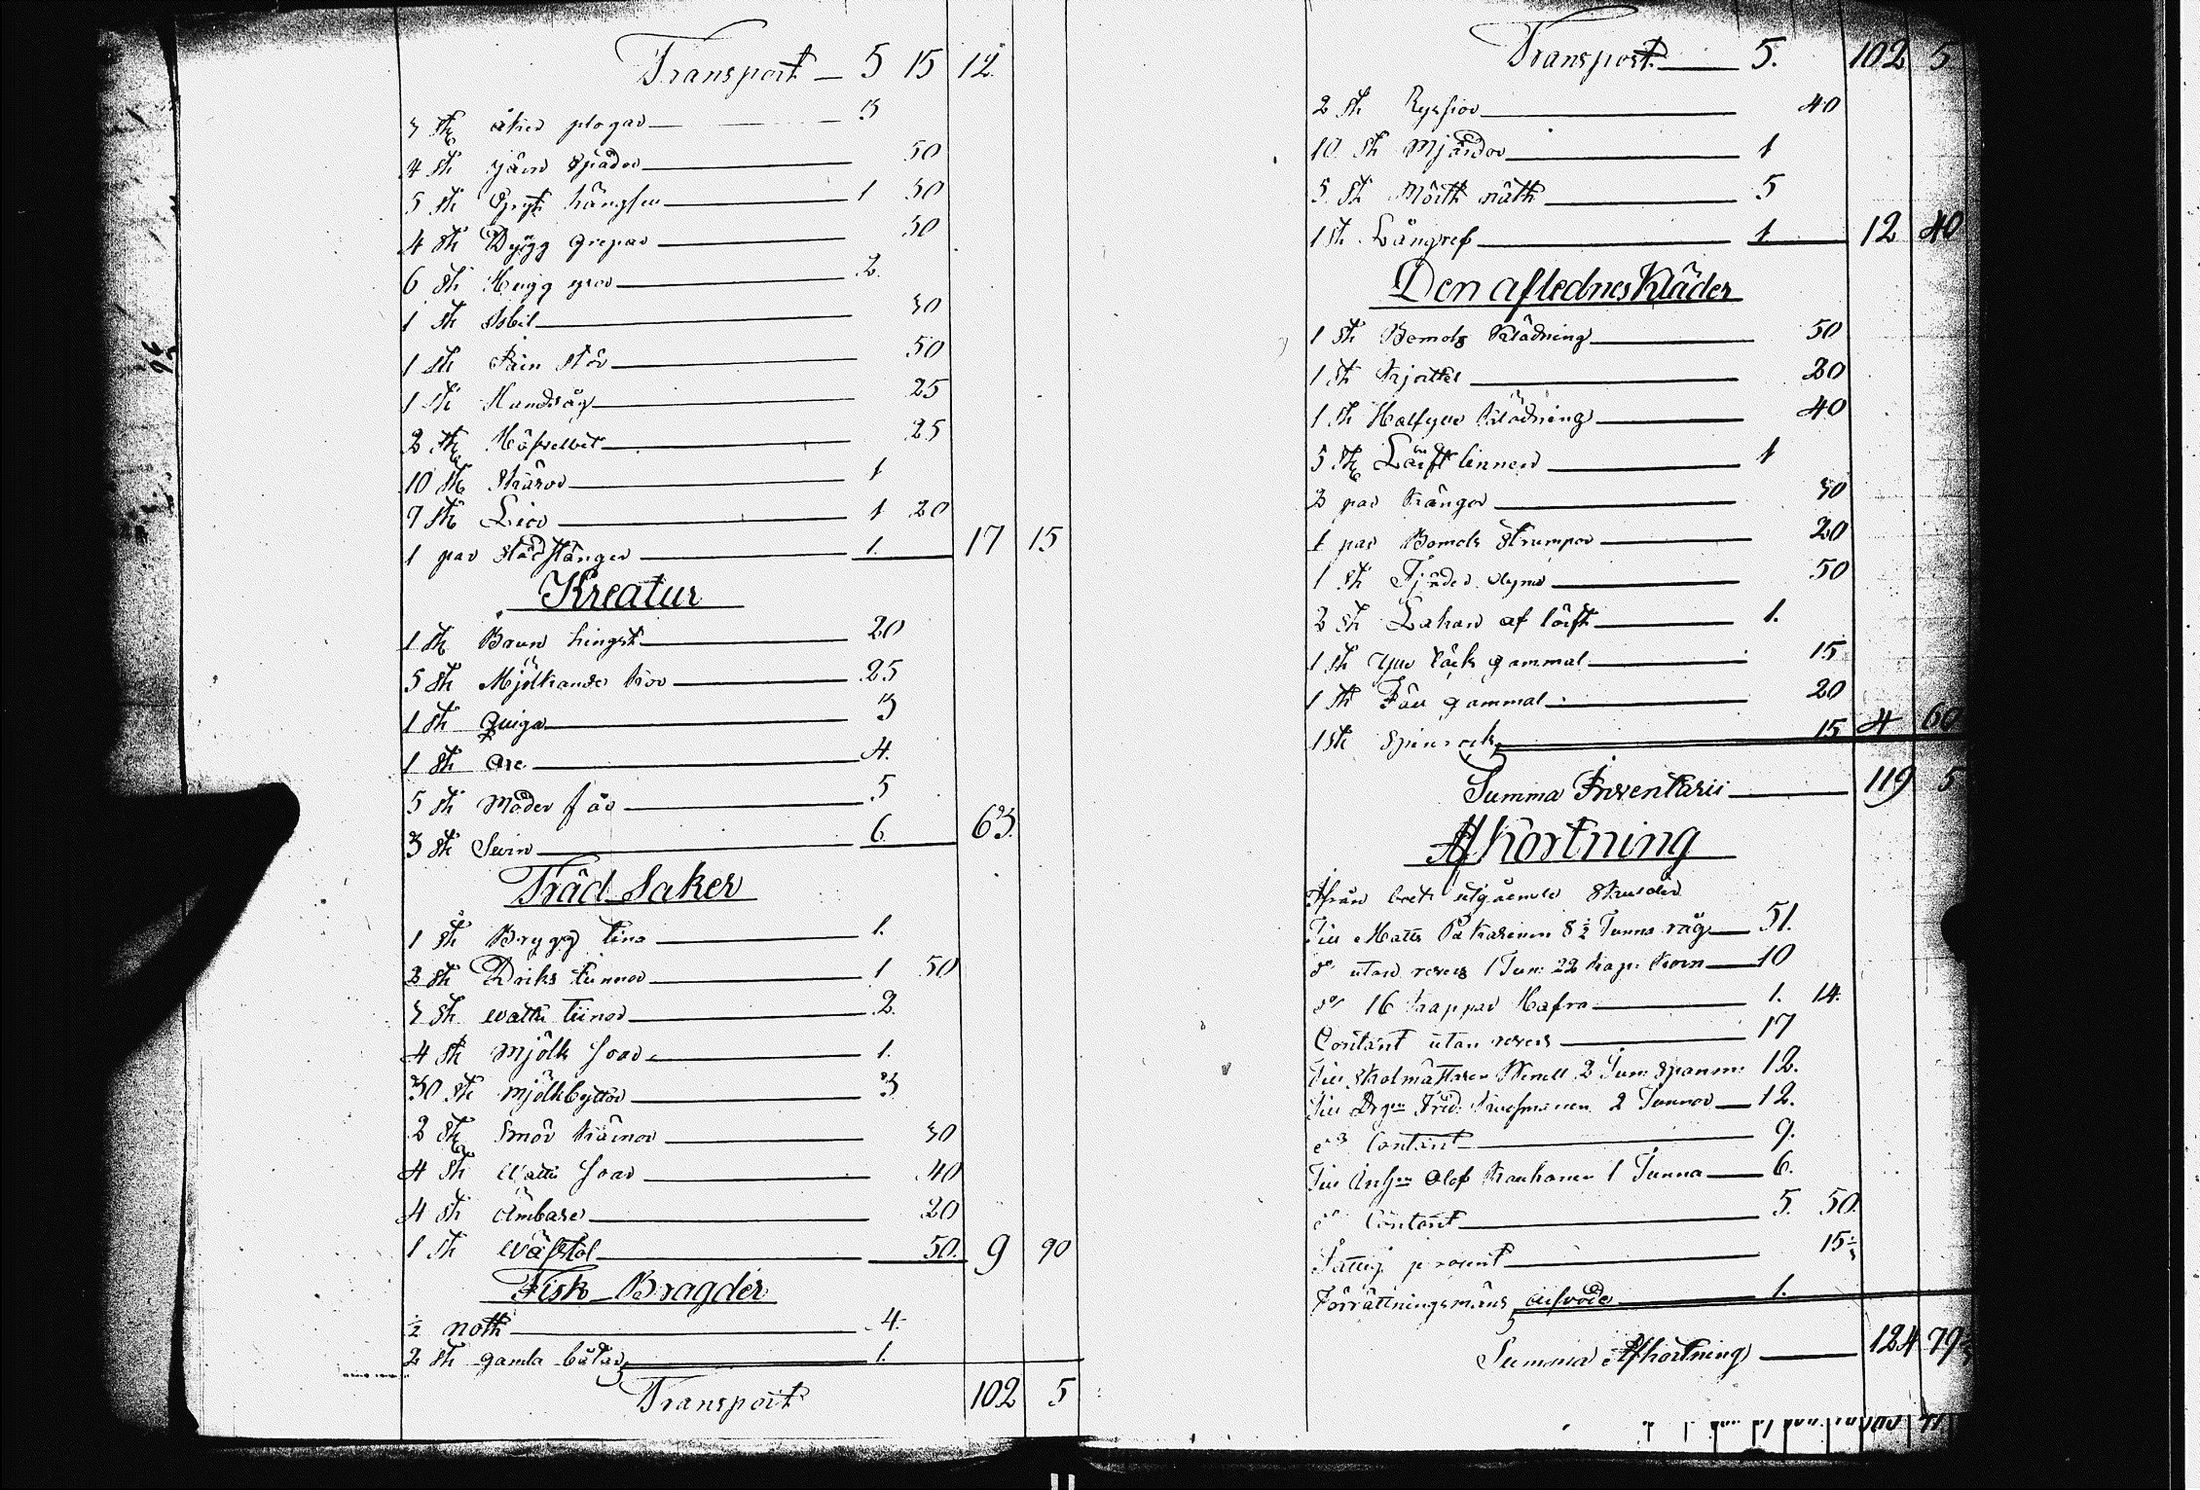 Transport 5 15 12
3 stk åker plogar 3
4 stk järn spador 50
5 stk Gryt hängslen 1 50
4 stk Dygg grepar 50
6 stk Hugg yxor 2
1 stk Isbil 30
1 stk stör 50
1 stk Handsåg 25
2 stk 25
10 stk Skäror 1
7 stk Liar 1 20
1 par städ stänger 1 17 15
Kreatur
1 stk Brun hingst 20
5 stk Mjölkande kor 25
1 stk Quiga 3
1 stk Oxe 4
5 stk Moder får 5
3 stk Swin 6 63
Träd Saker
1 stk Brygg tina 1
3 stk Driks tunnor 1 50
3 stk watte tiinor 2
4 stk mjölk soar 1
30 stk mjölkbyttor 3
2 stk Smör kärnor 30
4 stk Watte soar 40
4 stk Ämbare 20
1 stk Wäfstol 50 9 90
Fisk Bragder
½ noth 4
2 stk gamla båtar 1
Transport 102 5
Transport 5 102 5
2 stk Ryssior 40
10 stk Mjärdor 1
5 stk Mört näth 5
1 stk Långref 1 12 40
Den aflednes Kläder
1 stk Bomols Klädning 50
1 stk Kjortel 20
1 stk Halfylle Klädning 40
5 stk Lärft linnen 1
3 par Kängor 30
1 par Bomols Strumpor 20
1 stk Fjäder dyna 50
2 stk Lakan af lärft 1
1 stk Ylle täck gammal 15
1 stk Fäll gammal 20
1 stk Spinrock 15 4 60
Summa Inventarii 119 5
Afkortning
Ifrån boet utgående Skulder
Till Matts 8 ½ Tunna råg 51
do utan revers 1 Tun: 22 kap: korn 10
do 16 kappar Hafra 1 14
Contant utan revers 17
Till Skolmästaren Wenell 2 Tun: Spanm: 12
Till Fred: 2 Tunnor 12
do Contant 9
Till Olof 1 Tunna 6
do Contant 5 50
Fattig procent 15
Förrättningsmäns arfvode 1
Summa Afkortning 124 79